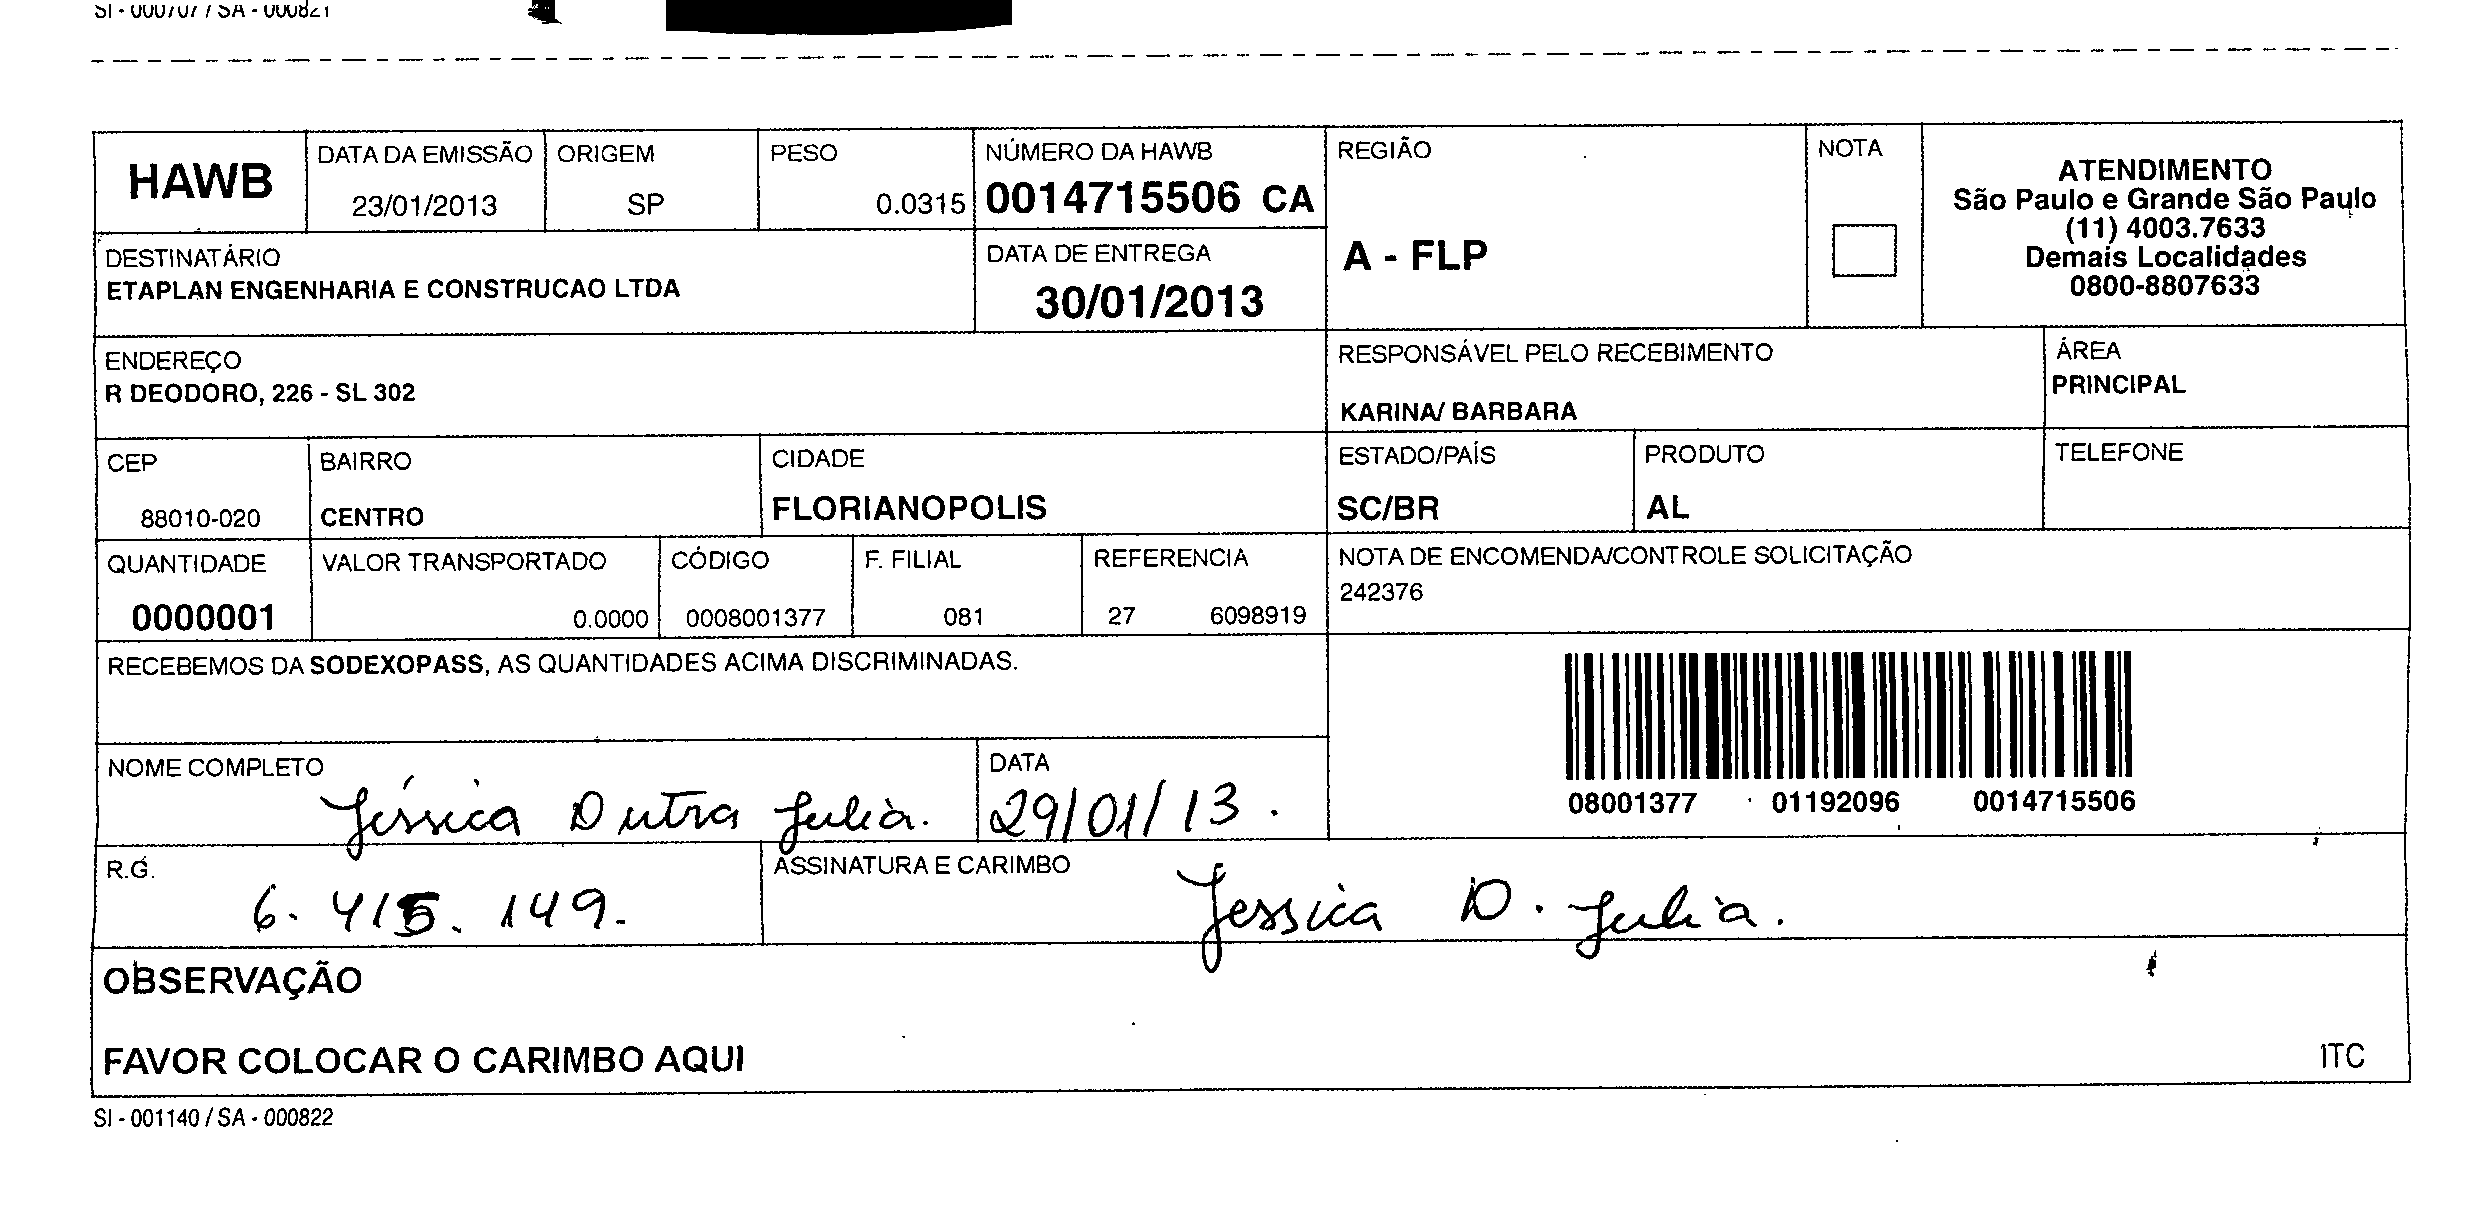 SI - 000707 / SA - 000821
HAWB
DATA DA EMISSÃO
23/01/2013
ORIGEM
SP
PESO
0.0315
NÚMERO DA HAWB
0014715506 CA
REGIÃO
A - FLP
NOTA
ATENDIMENTO
São Paulo e Grande São Paulo
(11) 4003.7633
Demais Localidades
0800-8807633
DESTINATÁRIO
ETAPLAN ENGENHARIA E CONSTRUCAO LTDA
DATA DE ENTREGA
30/01/2013
ENDEREÇO
R DEODORO, 226 - SL 302
RESPONSÁVEL PELO RECEBIMENTO
KARINA/ BARBARA
ÁREA
PRINCIPAL
CEP
88010-020
BAIRRO
CENTRO
CIDADE
FLORIANOPOLIS
ESTADO/PAÍS
SC/BR
PRODUTO
AL
TELEFONE
QUANTIDADE
0000001
VALOR TRANSPORTADO
0.0000
CÓDIGO
0008001377
F. FILIAL
081
REFERENCIA
27 6098919
NOTA DE ENCOMENDA/CONTROLE SOLICITAÇÃO
242376
RECEBEMOS DA SODEXOPASS, AS QUANTIDADES ACIMA DISCRIMINADAS.
08001377 01192096 0014715506
NOME COMPLETO
Jéssica Dutra Julia.
DATA
29/01/13.
R.G.
6.415.149.
ASSINATURA E CARIMBO
Jessica D. Julia.
OBSERVAÇÃO
FAVOR COLOCAR O CARIMBO AQUI
ITC
SI - 001140 / SA - 000822